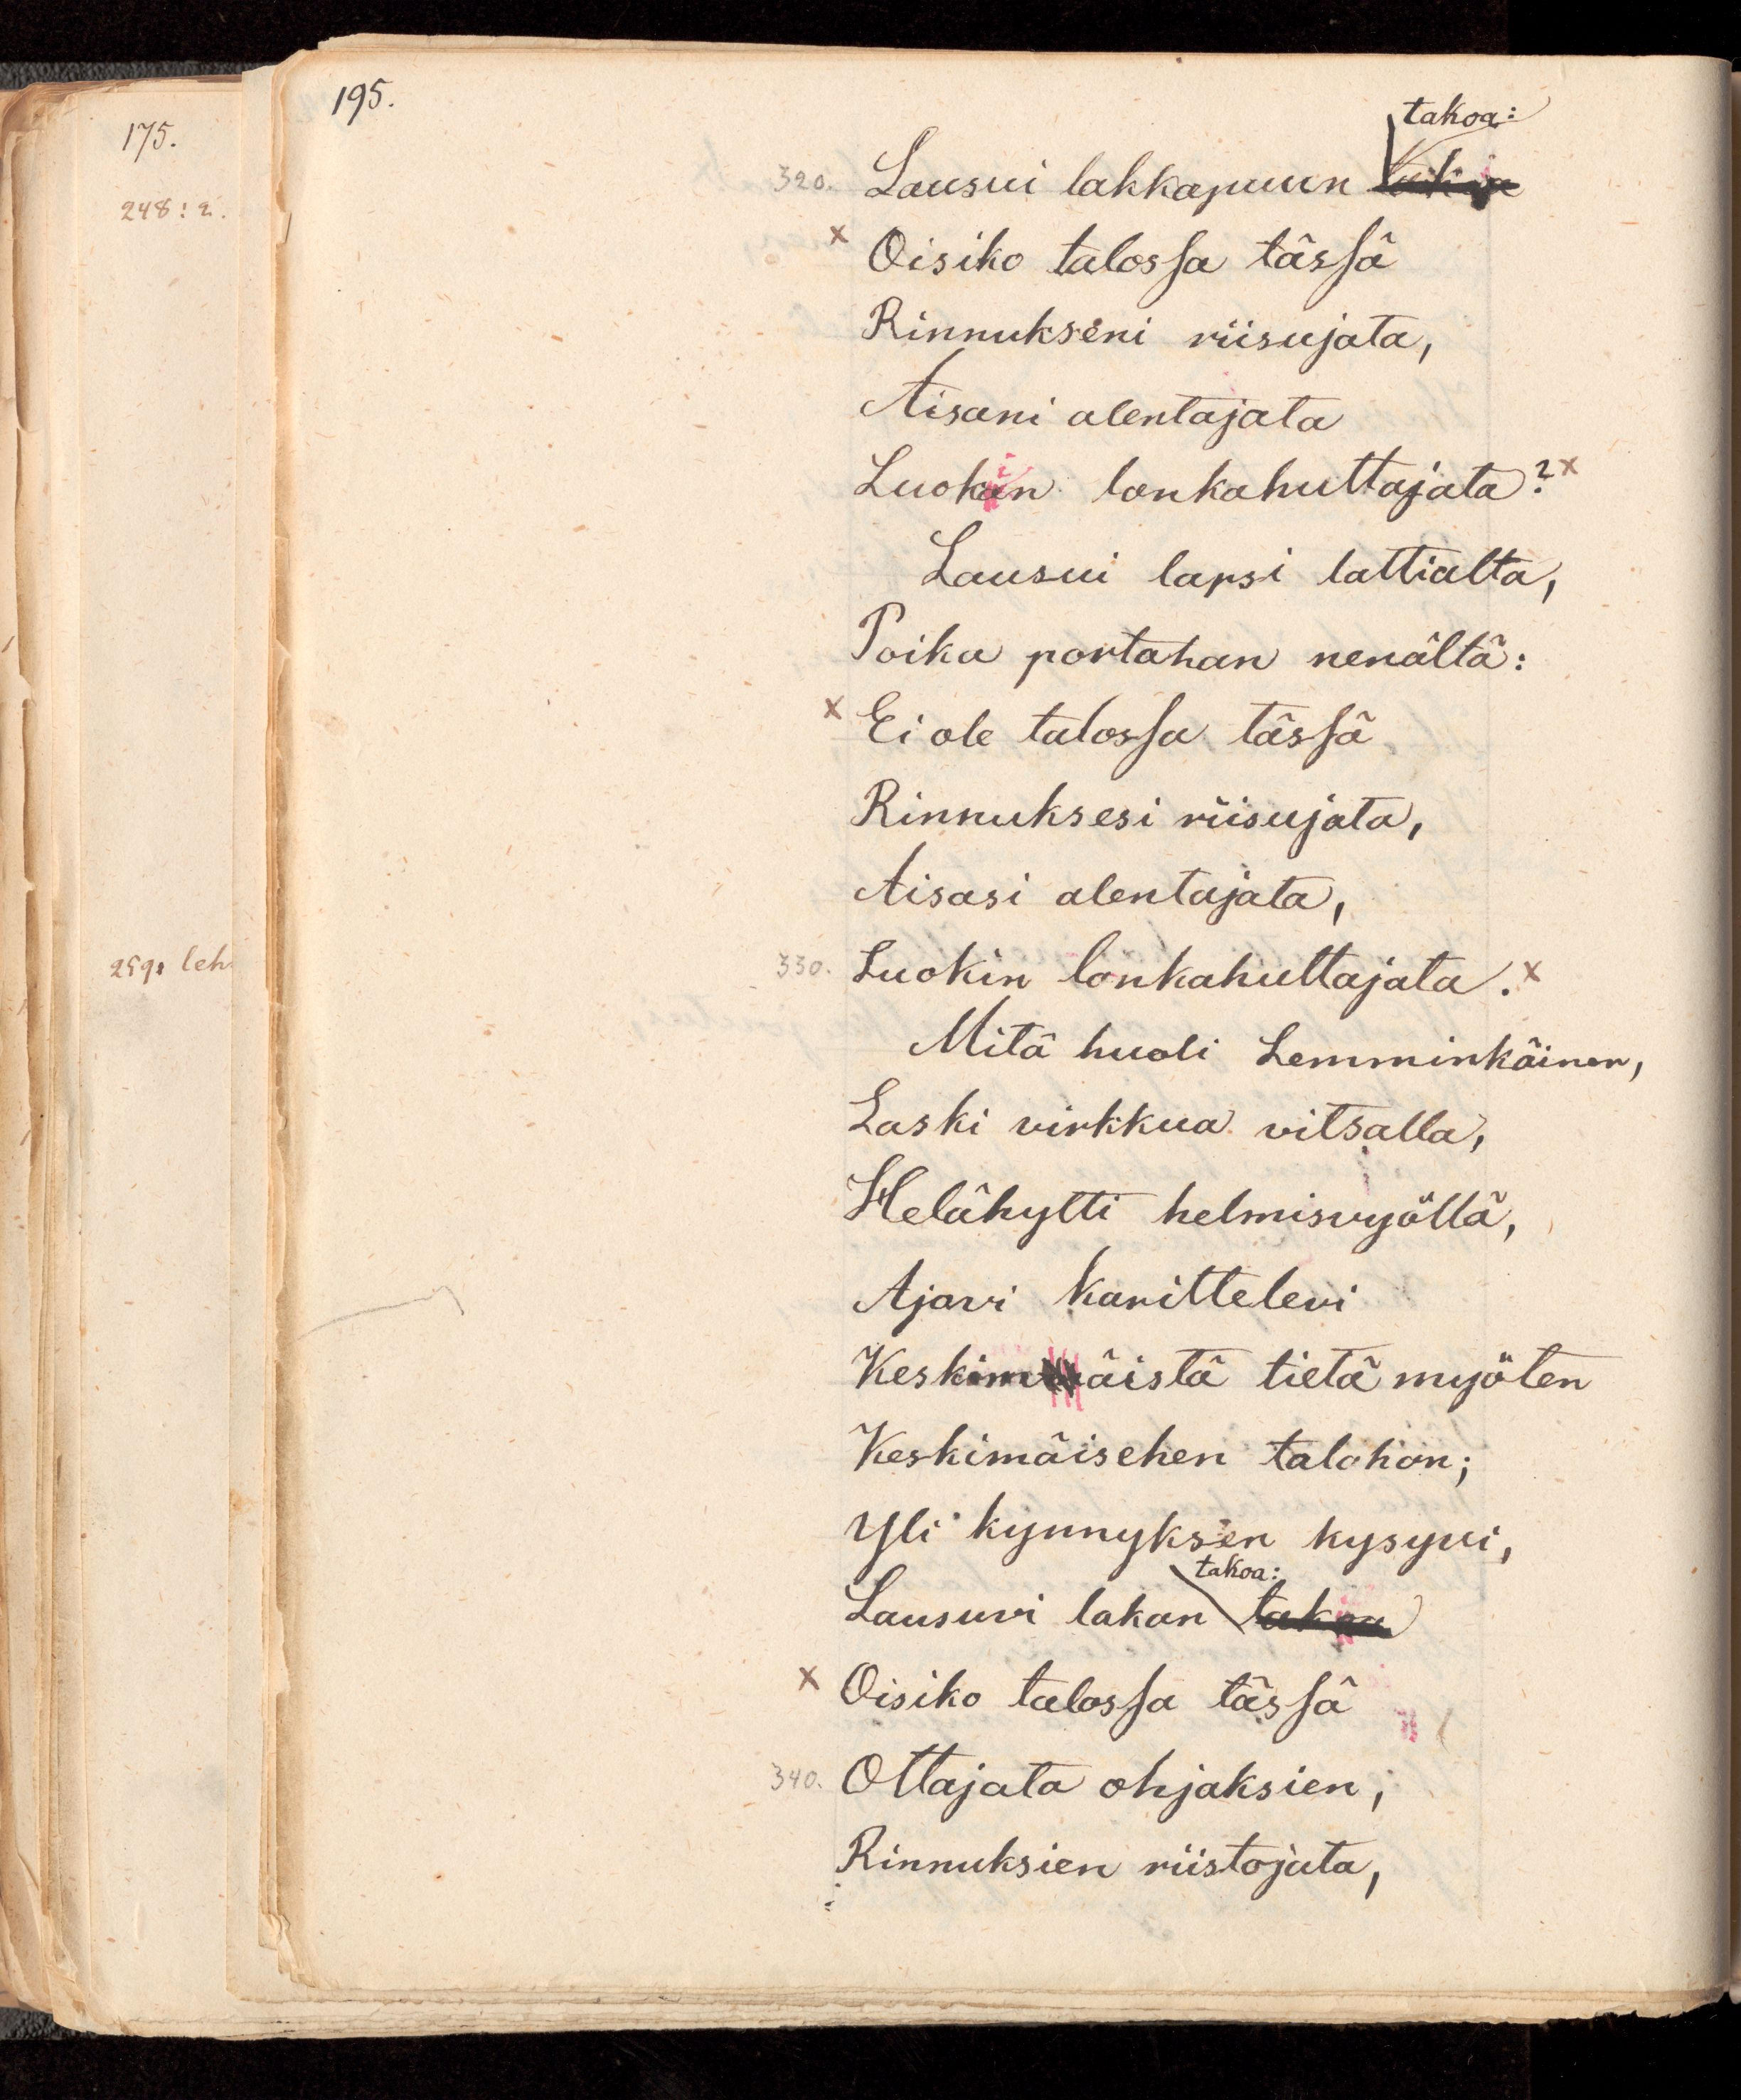 195.
175.
248: 2.
259: leh
takoa:
320. Lausui lakkapuun
x Oisiko talossa tässä
Rinnukseni riisujata,
Aisani alentajata
Luokin lonkahuttajata? x
Lausui lapsi lattialta,
Poika portahan nenältä:
x Ei ole talossa tässä
Rinnuksesi riisujata,
Aisasi alentajata,
330. Luokin lonkahuttajata. x
Mitä huoli Lemminkäinen,
Laski virkkua vitsalla,
Helähytti helmisvyöllä,
Ajavi karittelevi
Keskimäistä tietä myöten
Keskimäisehen talohon;
Yli kynnyksen kysyvi,
takoa:
Lausuvi lakan
x Oisiko talossa tässä
340. Ottajata ohjaksien,
Rinnuksien riistojata,